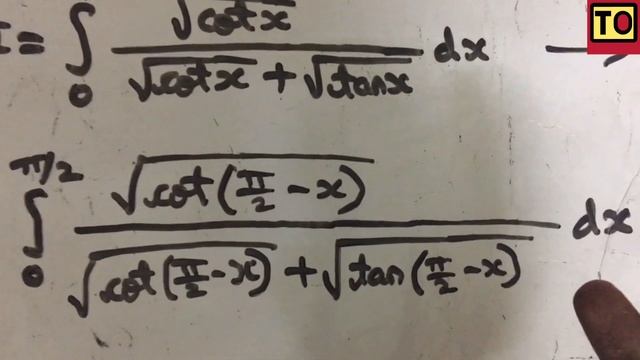 TO
I = ∫₀ √cot x / (√cot x + √tan x) dx →
∫₀^(π/2) √cot(π/2 − x) / (√cot(π/2 − x) + √tan(π/2 − x)) dx